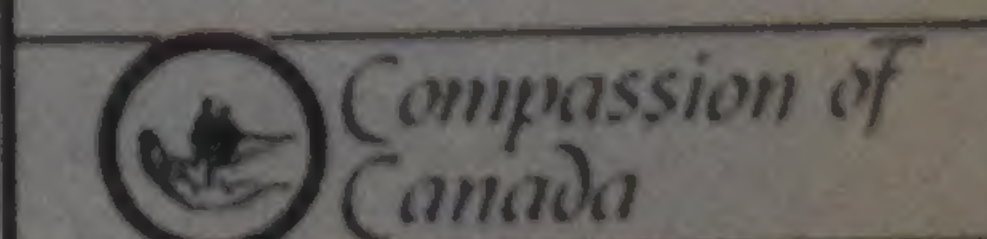 Compassion of
Canada